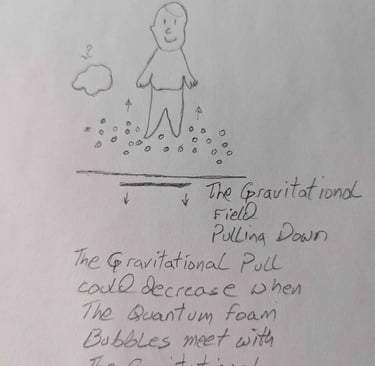 ?
The Gravitational
Field
Pulling Down
The Gravitational Pull
could decrease when
The Quantum foam
Bubbles meet with
The Gravitational